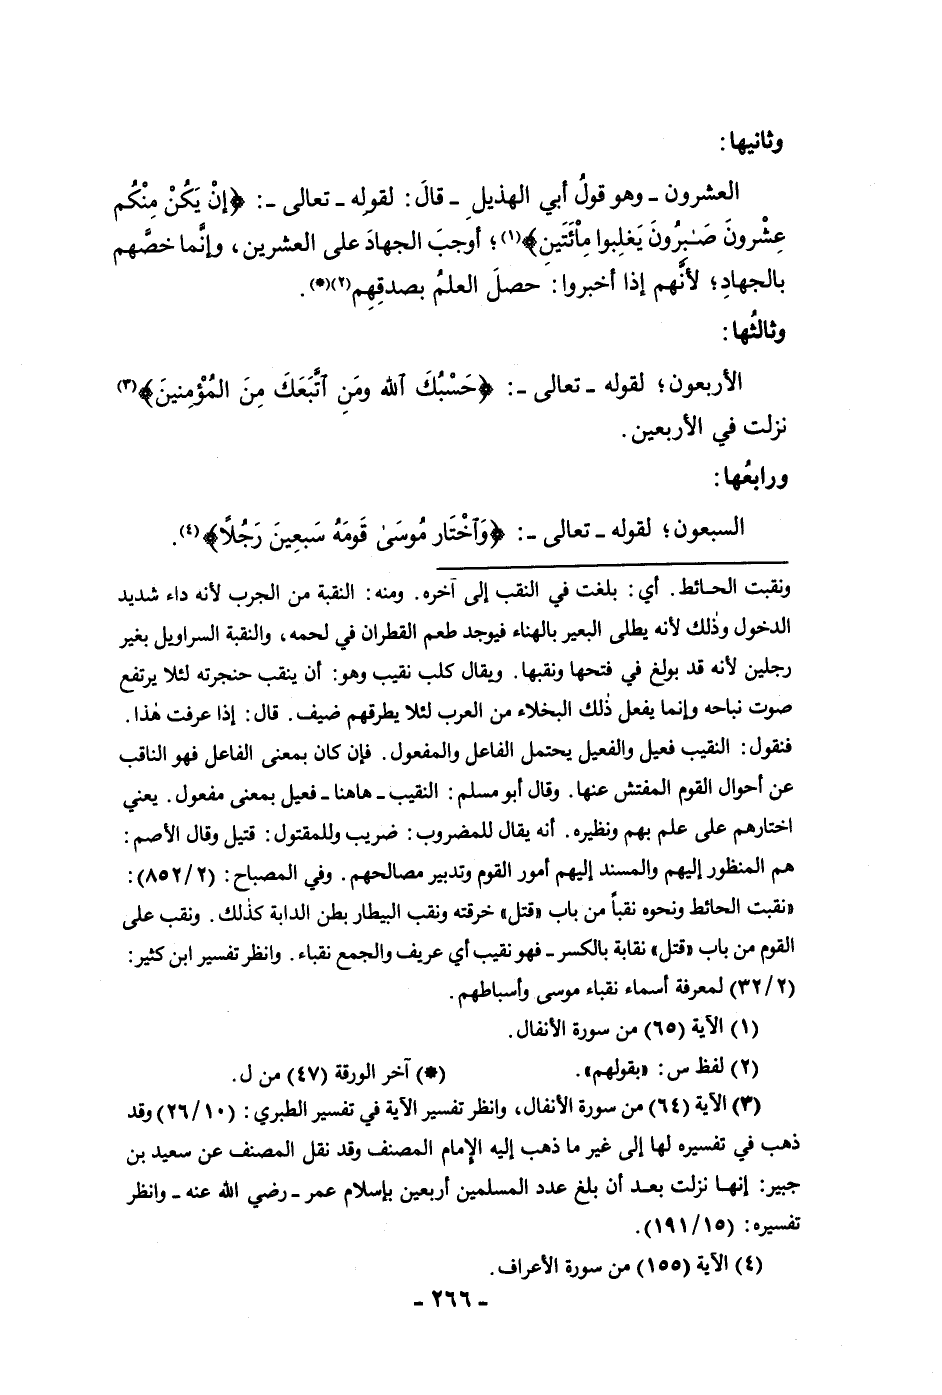 وثانيها:
العشرون ـ وهو قولُ أبي الهذيلِ ـ قالَ: لقوله ـ تعالى ـ: ﴿إنْ يَكُنْ مِنْكُم
عِشْرونَ صَـٰبِرُونَ يَغلِبوا مِاْئَتَينِ﴾(١)؛ أوجبَ الجهادَ على العشرين، وإنَّما خصَّهم
بالجهادِ؛ لأنَّهم إذا أخبروا: حصلَ العلمُ بصدقِهِم(٢)(*).
وثالثُها:
الأربعون؛ لقوله ـ تعالى ـ: ﴿حَسْبُكَ ٱلله ومَنِ ٱتَّبَعَكَ مِنَ المُؤْمِنينَ﴾(٣)
نزلت في الأربعين.
ورابعُها:
السبعون؛ لقوله ـ تعالى ـ: ﴿وَٱخْتَار مُوسَىٰ قَومَهُ سَبعِينَ رَجُلًا﴾(٤).
ونقبت الحـائط. أي: بلغت في النقب إلى آخره. ومنه: النقبة من الجرب لأنه داء شديد
الدخول وذٰلك لأنه يطلى البعير بالهناء فيوجد طعم القطران في لحمه، والنقبة السراويل بغير
رجلين لأنه قد بولغ في فتحها ونقبها. ويقال كلب نقيب وهو: أن ينقب حنجرته لئلا يرتفع
صوت نباحه وإنما يفعل ذٰلك البخلاء من العرب لئلا يطرقهم ضيف. قال: إذا عرفت هٰذا.
فنقول: النقيب فعيل والفعيل يحتمل الفاعل والمفعول. فإن كان بمعنى الفاعل فهو الناقب
عن أحوال القوم المفتش عنها. وقال أبو مسلم: النقيب ـ هاهنا ـ فعيل بمعنى مفعول. يعني
اختارهم على علم بهم ونظيره. أنه يقال للمضروب: ضريب وللمقتول: قتيل وقال الأصم:
هم المنظور إليهم والمسند إليهم أمور القوم وتدبير مصالحهم. وفي المصباح: (٨٥٢/٢):
«نقبت الحائط ونحوه نقباً من باب «قتل» خرقته ونقب البيطار بطن الدابة كذٰلك. ونقب على
القوم من باب «قتل» نقابة بالكسر ـ فهو نقيب أي عريف والجمع نقباء. وانظر تفسير ابن كثير:
(٣٢/٢) لمعرفة أسماء نقباء موسى وأسباطهم.
(١) الآية (٦٥) من سورة الأنفال.
(٢) لفظ س: «بقولهم». (*) آخر الورقة (٤٧) من ل.
(٣) الآية (٦٤) من سورة الأنفال، وانظر تفسير الآية في تفسير الطبري: (٢٦/١٠) وقد
ذهب في تفسيره لها إلى غير ما ذهب إليه الإمام المصنف وقد نقل المصنف عن سعيد بن
جبير: إنهـا نزلت بعـد أن بلغ عدد المسلمين أربعين بإسلام عمر ـ رضي الله عنه ـ وانظر
تفسيره: (١٩١/١٥).
(٤) الآية (١٥٥) من سورة الأعراف.
ـ ٢٦٦ ـ